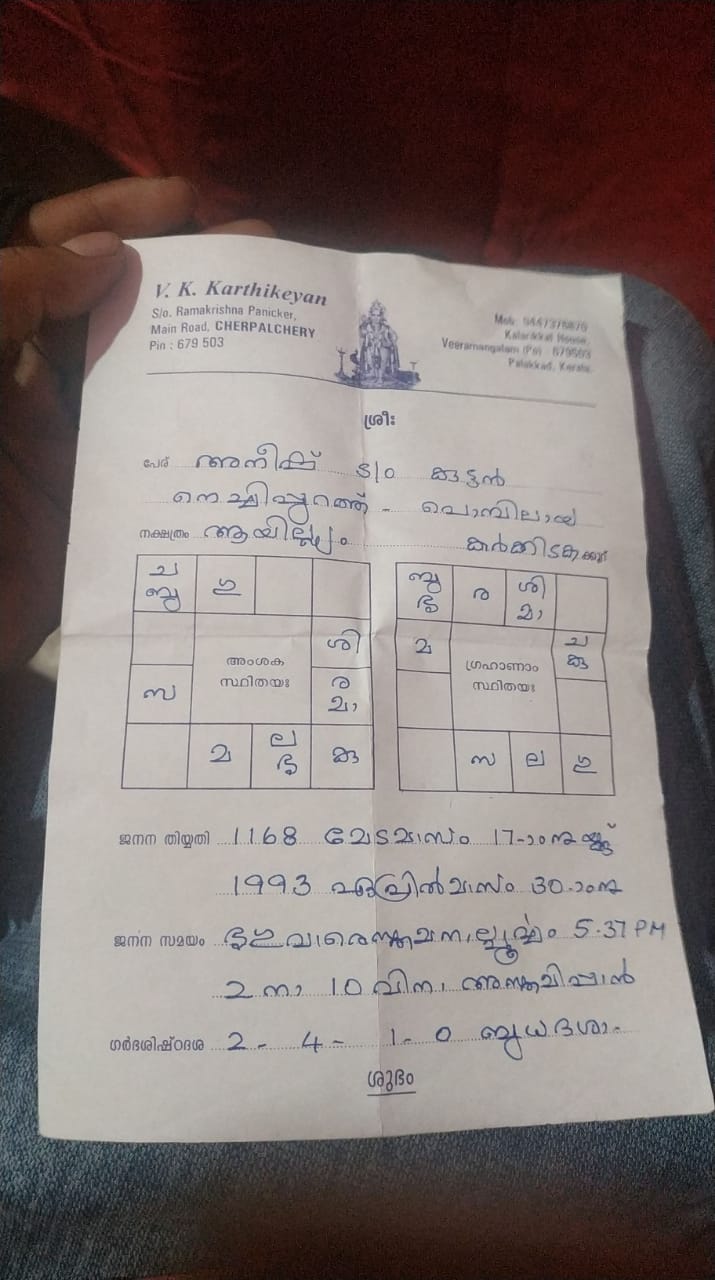 V. K. Karthikeyan
S/o. Ramakrishna Panicker,
Main Road, CHERPALCHERY
Pin : 679 503
Kalarikkal House,
Veeramangalam (Po) 679503
Palakkad, Kerala.
ശ്രീഃ
പേര് അനീഷ് S/o കുട്ടൻ
നക്ഷത്രം ആയില്ല്യം കർക്കിടകക്കൂറ്
ച ഇ
ബു
ശി
അംശക
സ്ഥിതയഃ
സ ര
മാ
മ ല കു
ബു ര ശി
മാ
മ ച
കു
ഗ്രഹാണാം
സ്ഥിതയഃ
സ ല ഇ
ജനന തിയ്യതി 1168 മേടമാസം 17-ാംനു
1993 ഏപ്രിൽമാസം 30-ാംനു
ജനന സമയം 5.37 PM
2 നാ 10 വിനാ അസ്തമിപ്പാൻ
ഗർഭശിഷ്ഠദശ 2 - 4 - 1 - 0 ബുധദശാ
ശുഭം